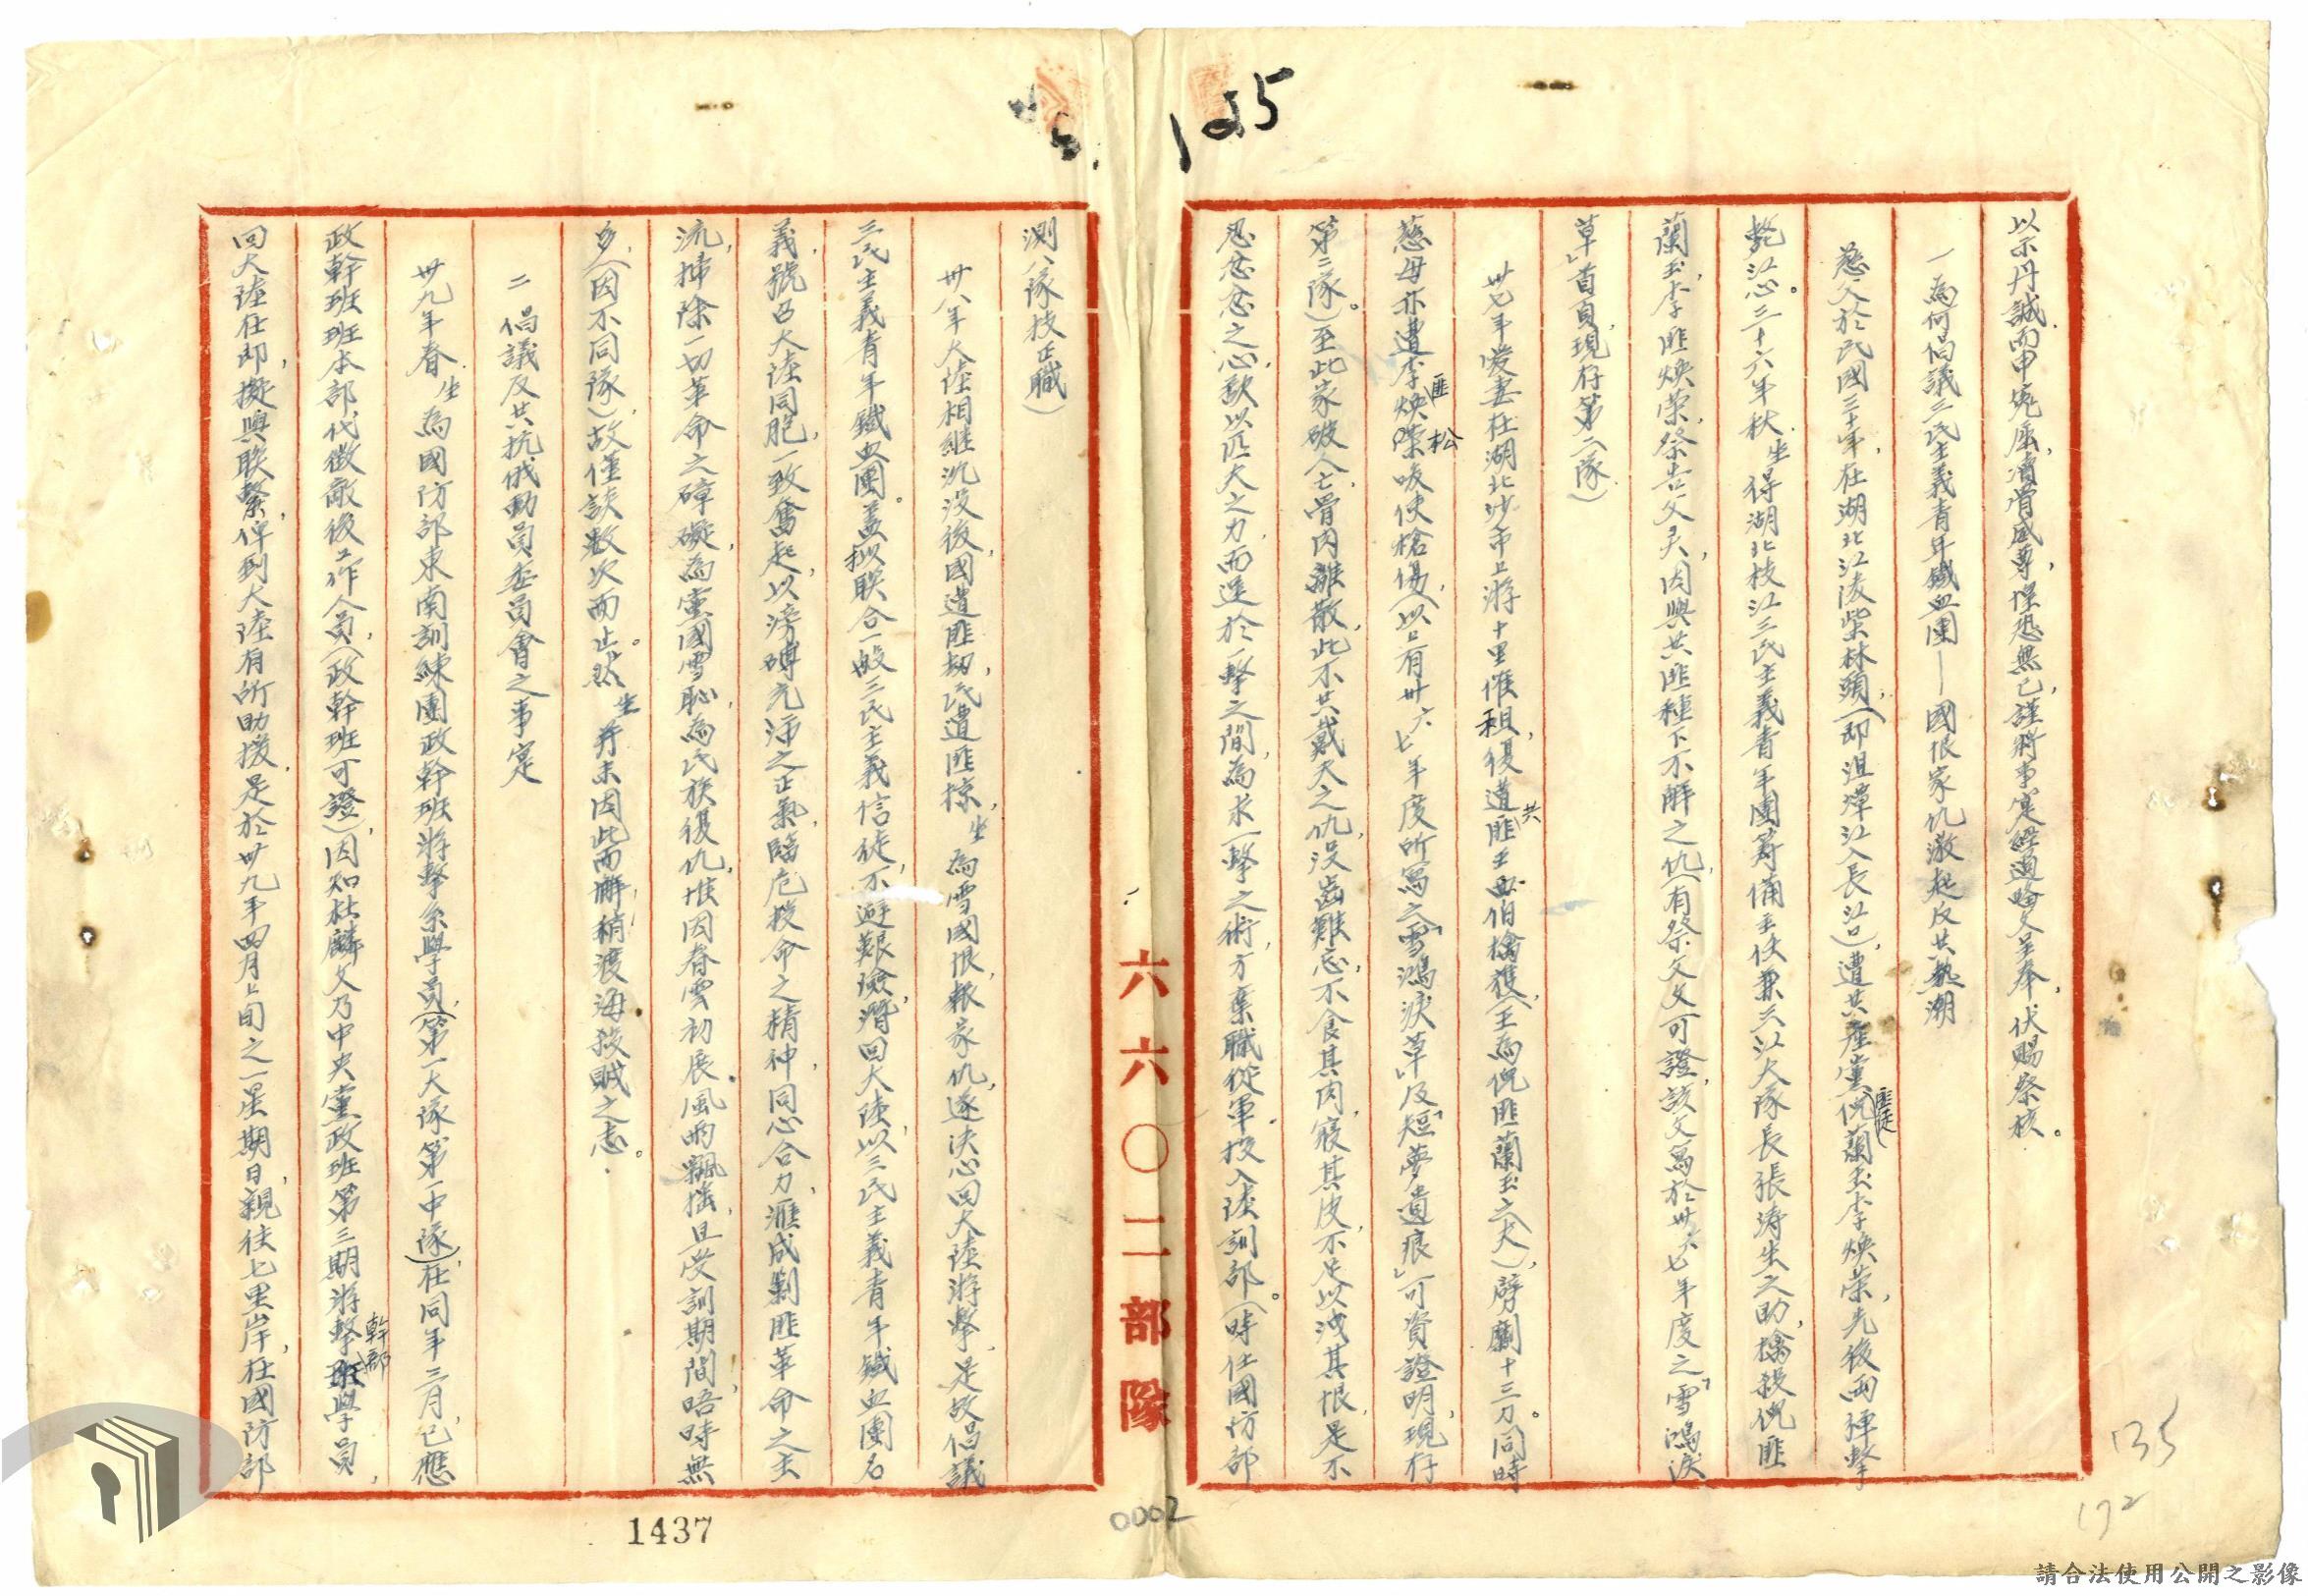 125
以示丹誠而申冤屈,瀆冒威尊,惶恐無已,謹將事實經過略文呈奉,伏賜察核。
一為何倡議三民主義青年鐵血團——國恨家仇激起反共熱潮
慈父於民國三十年,在湖北江陵柴林頭,(即沮漳江入長江口),遭共產黨匪徒倪蘭玉李煥榮,先後兩彈擊
斃江心。三十六年秋,生得湖北枝江三民主義青年團籌備主任兼三江大隊長張濤生之助,擒殺倪匪
蘭玉,李匪煥榮,祭告父灵,因與共匪種下不解之仇,(有祭父文可證,該文寫於卅六七年度之「雪鴻淚
草」首頁,現存第二隊)
卅七年愛妻在湖北沙市上游十里催租,復遭共匪王伯擒獲,(王為倪匪蘭玉之夫),劈剮十三刀。同時
慈母亦遭李匪煥松唆使槍傷,(以上有卅六七年度所寫之「雪鴻淚草」及「短夢遺痕」可資證明,現存
第二隊)。至此家破人亡骨肉離散,此不共戴天之仇,没齒難忘,不食其肉,寢其皮,不足以洩其恨,是不
忍忿忿之心,歘以匹夫之力,而逞於一擊之間,為求一擊之術,方棄職從軍投入陸訓部。(時任國防部
六六〇二部隊
測八隊技正職)
卅八年大陸相繼沉沒後,國遭匪刼,民遭匪掠,生為雪國恨,報家仇,遂決心回大陸游擊,是故倡議
三民主義青年鐵血團。蓋擬聯合一般三民主義信徒,不避艱險,潛回大陸,以三民主義青年鐵血團名
義,號召大陸同胞,一致奮起,以滂礡充沛之正氣,臨危授命之精神,同心合力,滙成剿匪革命之主
流,掃除一切革命之障礙,為黨國雪恥,為民族復仇,惟因春雲初展,風雨飄搖,且受訓期間,晤時無
多,(因不同隊)故僅談數次而止。然生并未因此而解稍渡海殺賊之志。
二 倡議反共抗俄動員委員會之事實
卅九年春,生為國防部東南訓練團政幹班游擊系學員,(第一大隊第一中隊)在同年三月,已應
政幹班班本部代徵敵後工作人員,(政幹班可證)因知杜麟文乃中央黨政班第三期游擊幹部學員,
回大陸在即,擬與聯繫,俾到大陸有所助援,是於卅九年四月上旬之一星期日,親往七里岸,在國防部
1437
0002
135
172
請合法使用公開之影像